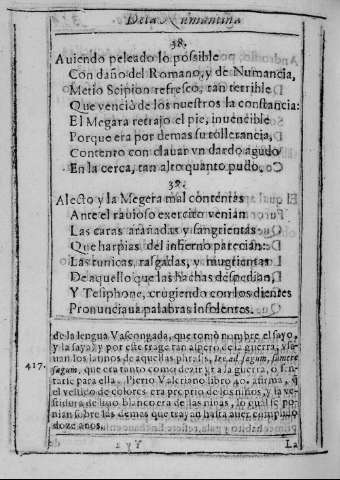 De la Numantina
38.
Auiendo peleado lo possible
Con daño del Romano, y de Numancia,
Metio Scipion refresco, tan terrible
Que venciò de los nuestros la constancia:
El Megara retrajo el pie, inuencible
Porque era por demas su tollerancia,
Contento con clauar vn dardo agudo
En la cerca, tan alto quanto pudo.
39.
Alecto y la Megera mal contentas
Ante el rauioso exercito venian
Las caras arañadas y sangrientas
Que harpias del infierno parecian:
Las tunicas, rasgadas, y mugrientas
De aquello que las hachas despedian,
Y Tesiphone, crugiendo con los dientes
Pronunciaua palabras insolentes.
de la lengua Vascongada, que tomò nombre el sayo,
y la saya: y por este trage tan ligero de la guerra, vsa-
uan los latinos de aquellas phrasis, ire ad sagum, sumere
417. sagum, que era tanto como dezir yr a la guerra, o
tarse para ella. Pierio Valeriano libro 40. afirma, q̃
el vestido de colores era proprio de los niños, y la ve-
stidura de lino blanco era de las niñas, lo qual se po-
nian sobre las demas que trayan hasta auer cumplido
doze años.
La